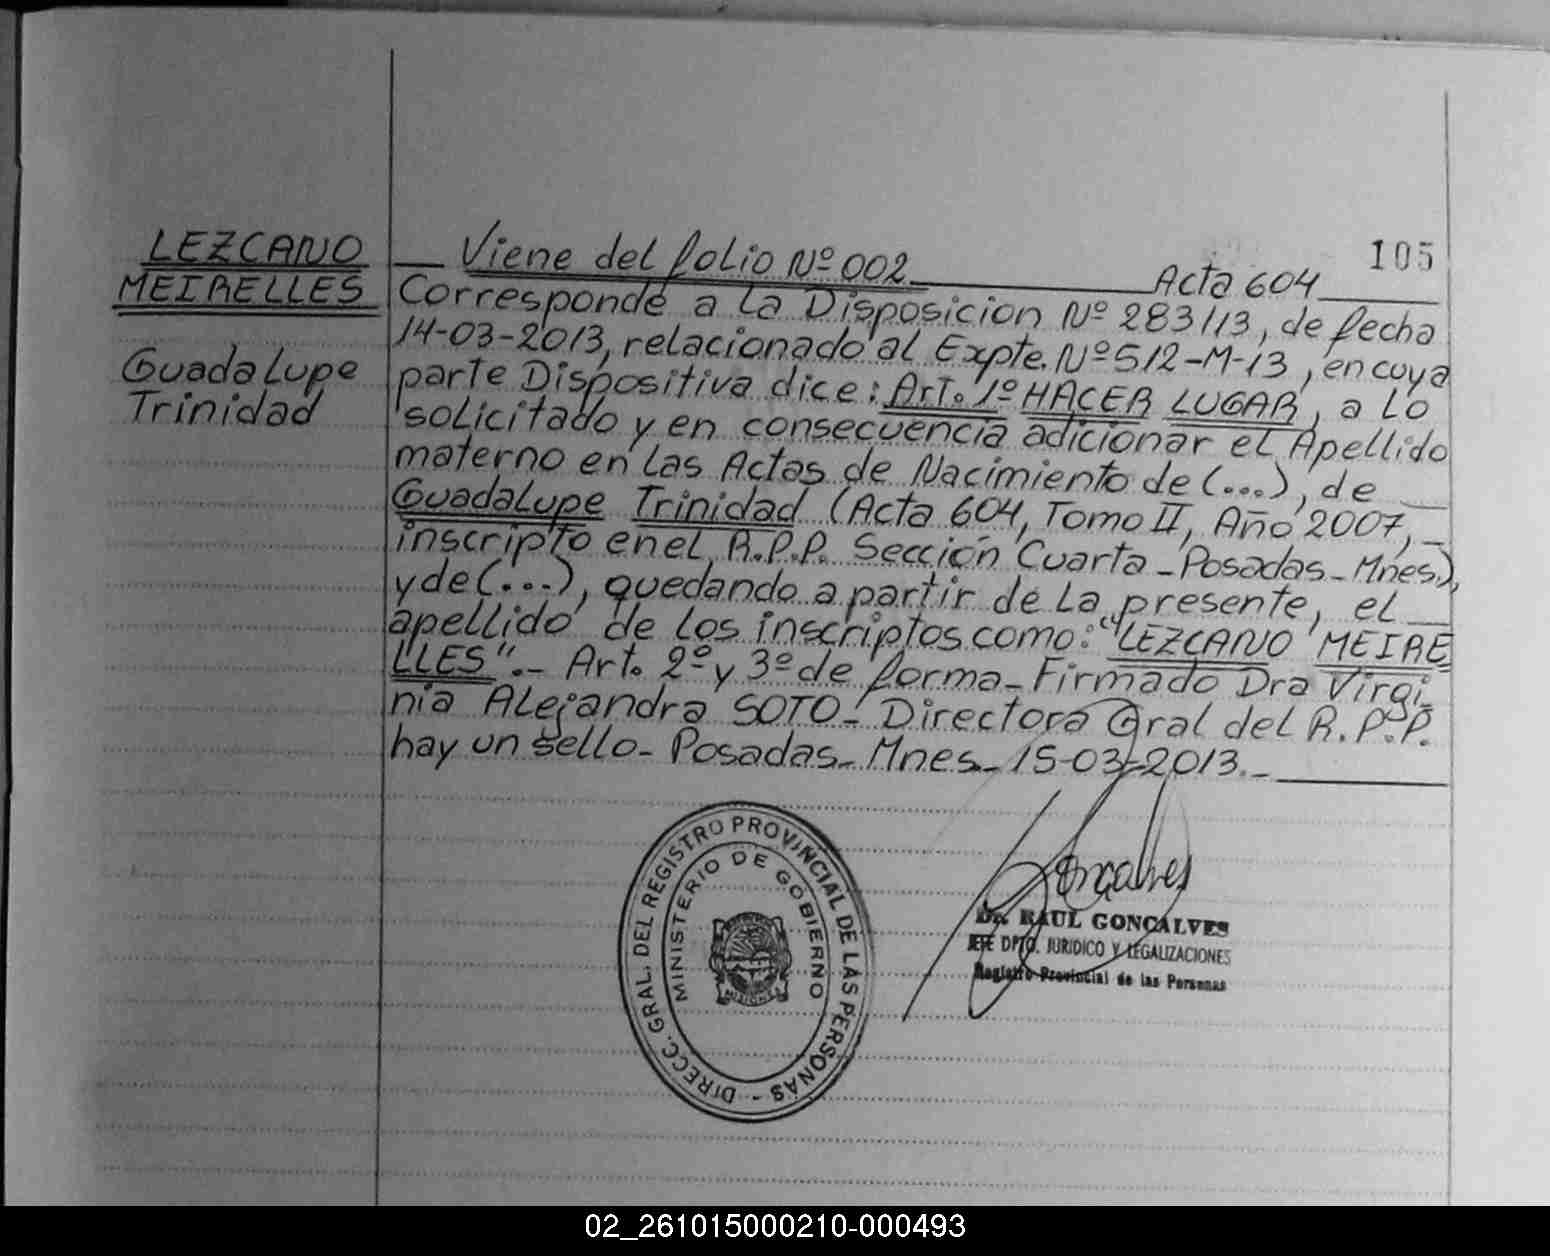 LEZCANO
MEIRELLES
Guadalupe
Trinidad
105
Viene del folio Nº 002 Acta 604
Corresponde a la Disposicion Nº 283/13, de fecha
14-03-2013, relacionado al Expte. Nº 512-M-13, en cuya
parte Dispositiva dice: Art. 1º HACER LUGAR, a lo
solicitado y en consecuencia adicionar el Apellido
materno en las Actas de Nacimiento de (...), de
Guadalupe Trinidad (Acta 604, Tomo II, Año 2007,
inscripto en el R.P.P. Sección Cuarta - Posadas - Mnes.),
y de (...), quedando a partir de la presente, el
apellido de los inscriptos como: "LEZCANO MEIRE
LLES".- Art. 2º y 3º de forma - Firmado Dra Virgi_
nia Alejandra SOTO - Directora Gral del R.P.P.
hay un sello - Posadas - Mnes - 15-03-2013.-
DIRECC. GRAL. DEL REGISTRO PROVINCIAL DE LAS PERSONAS -
MINISTERIO DE GOBIERNO
MISIONES
Gonçalves
Dr. RAUL GONÇALVES
JEFE DPTO. JURIDICO Y LEGALIZACIONES
Registro Provincial de las Personas
02_261015000210-000493